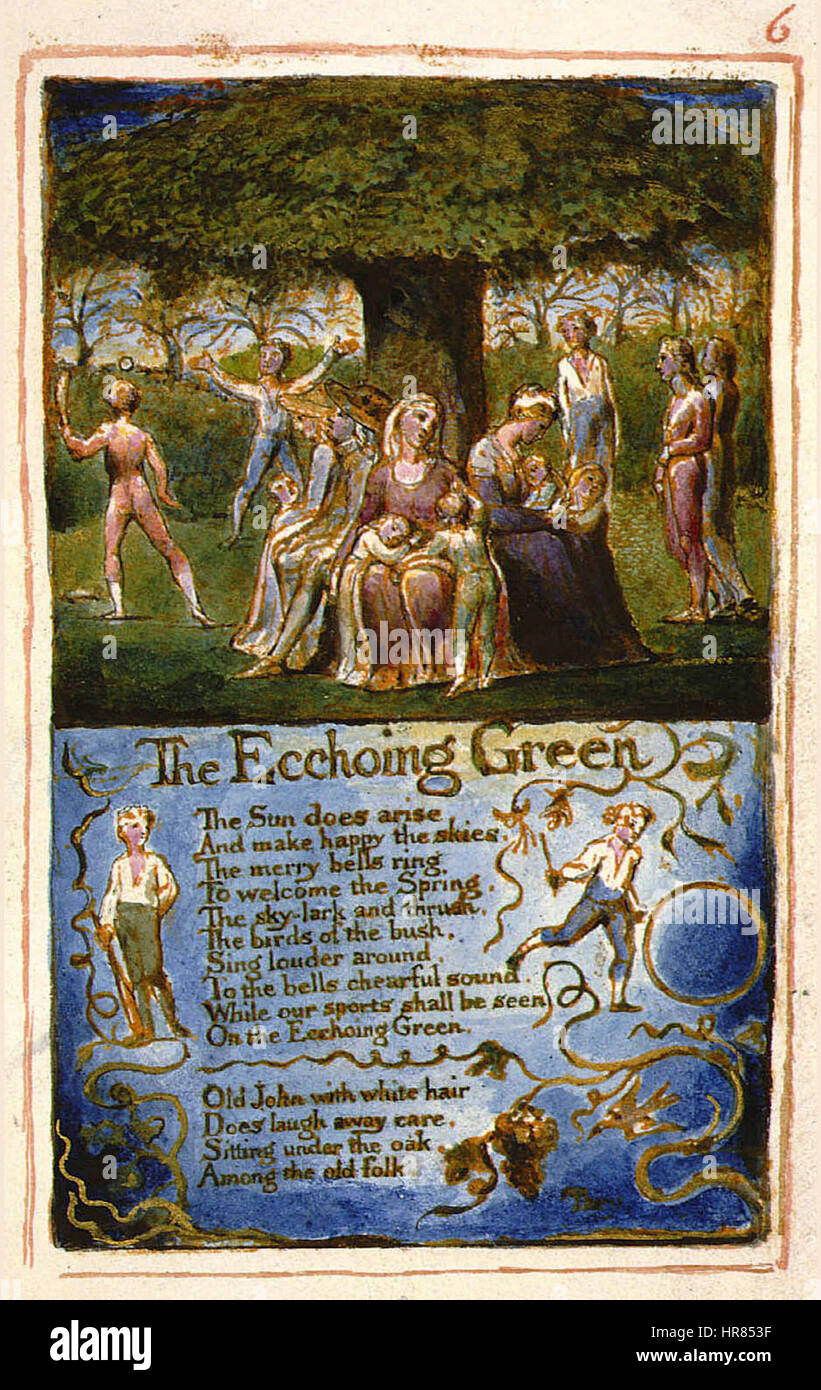 6
The Ecchoing Green
The Sun does arise
And make happy the skies.
The merry bells ring,
To welcome the Spring.
The sky-lark and thrush,
The birds of the bush,
Sing louder around,
To the bells chearful sound.
While our sports shall be seen
On the Ecchoing Green.
Old John with white hair
Does laugh away care,
Sitting under the oak
Among the old folk
alamy
alamy stock photo
HR853F
www.alamy.com